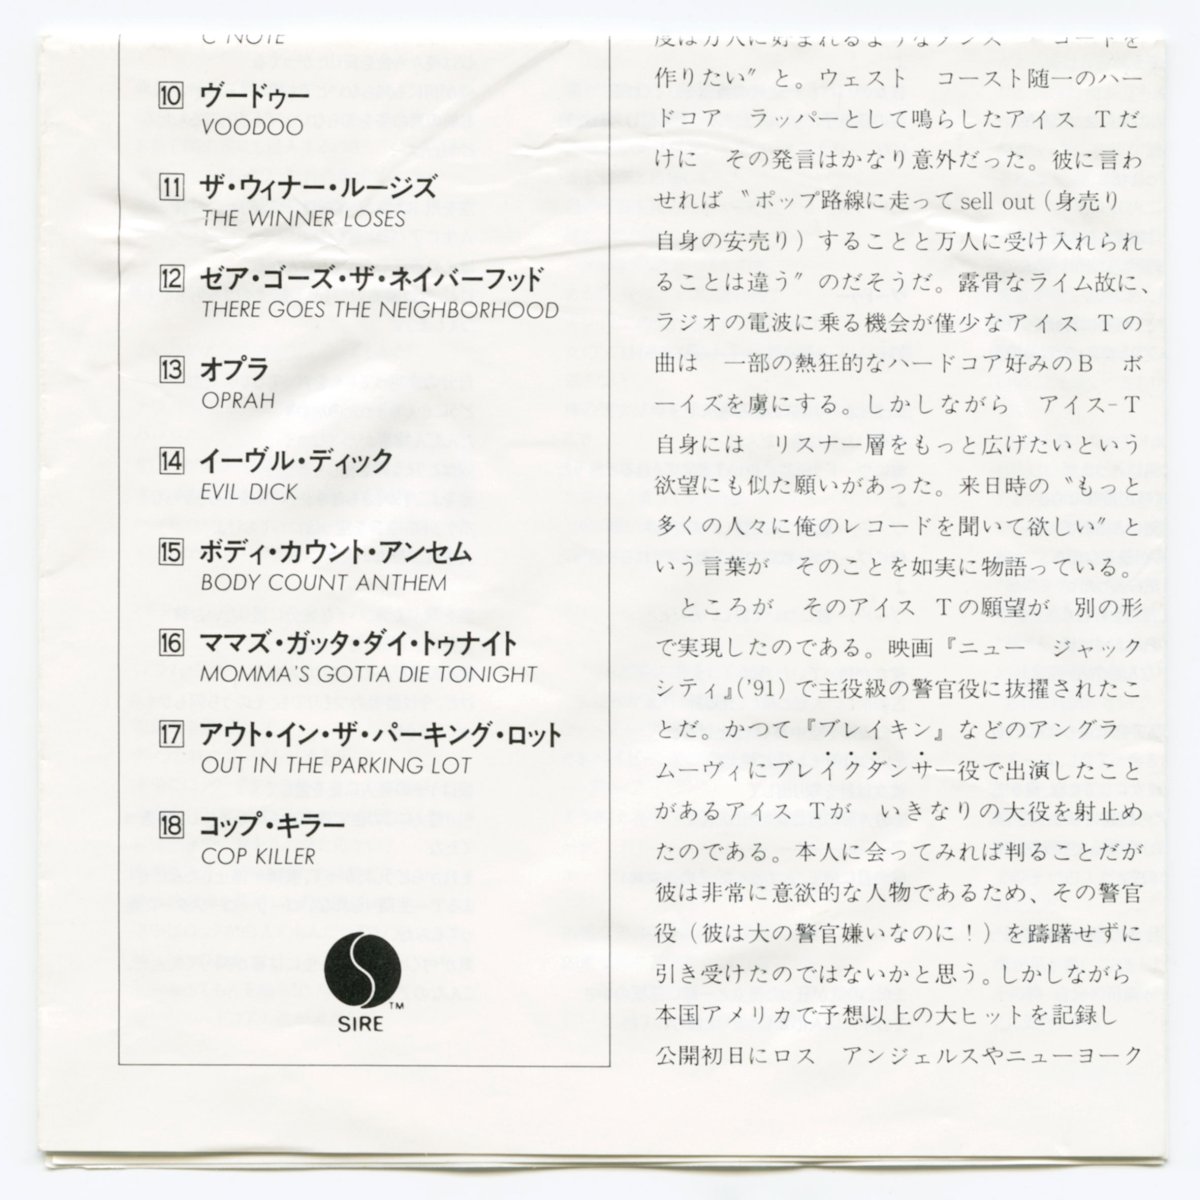 C NOTE
10 ヴードゥー
VOODOO
11 ザ・ウィナー・ルージズ
THE WINNER LOSES
12 ゼア・ゴーズ・ザ・ネイバーフッド
THERE GOES THE NEIGHBORHOOD
13 オプラ
OPRAH
14 イーヴル・ディック
EVIL DICK
15 ボディ・カウント・アンセム
BODY COUNT ANTHEM
16 ママズ・ガッタ・ダイ・トゥナイト
MOMMA'S GOTTA DIE TONIGHT
17 アウト・イン・ザ・パーキング・ロット
OUT IN THE PARKING LOT
18 コップ・キラー
COP KILLER
TM
SIRE
度は万人に好まれるようなダンス レコードを
作りたい〞と。ウェスト コースト随一のハー
ドコア ラッパーとして鳴らしたアイス Tだ
けに その発言はかなり意外だった。彼に言わ
せれば〝ポップ路線に走って sell out (身売り
自身の安売り) することと万人に受け入れられ
ることは違う〞のだそうだ。露骨なライム故に、
ラジオの電波に乗る機会が僅少なアイス Tの
曲は 一部の熱狂的なハードコア好みのB ボ
ーイズを虜にする。しかしながら アイス-T
自身には リスナー層をもっと広げたいという
欲望にも似た願いがあった。来日時の〝もっと
多くの人々に俺のレコードを聞いて欲しい〞と
いう言葉が そのことを如実に物語っている。
ところが そのアイス Tの願望が 別の形
で実現したのである。映画『ニュー ジャック
シティ』('91) で主役級の警官役に抜擢されたこ
とだ。かつて『ブレイキン』などのアングラ
ムーヴィにブレイクダンサー役で出演したこと
があるアイス Tが いきなりの大役を射止め
たのである。本人に会ってみれば判ることだが
彼は非常に意欲的な人物であるため、その警官
役 (彼は大の警官嫌いなのに！) を躊躇せずに
引き受けたのではないかと思う。しかしながら
本国アメリカで予想以上の大ヒットを記録し
公開初日にロス アンジェルスやニューヨーク